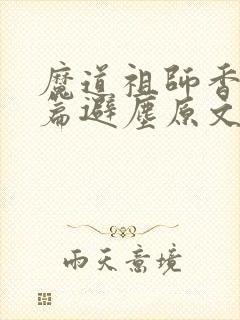 魔道祖師香
篇避塵原文
雨天意境